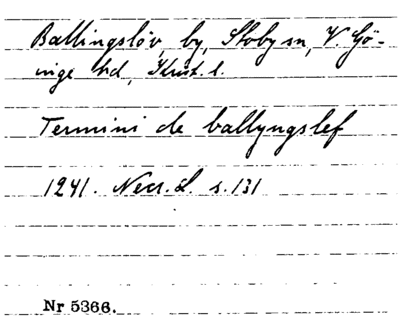 Ballingslöv, by, Stoby sn, V. Gö-
inge hd, Krist. l.
Termini de ballyngslef
1241. Necr. L. s. 131
Nr 5366.